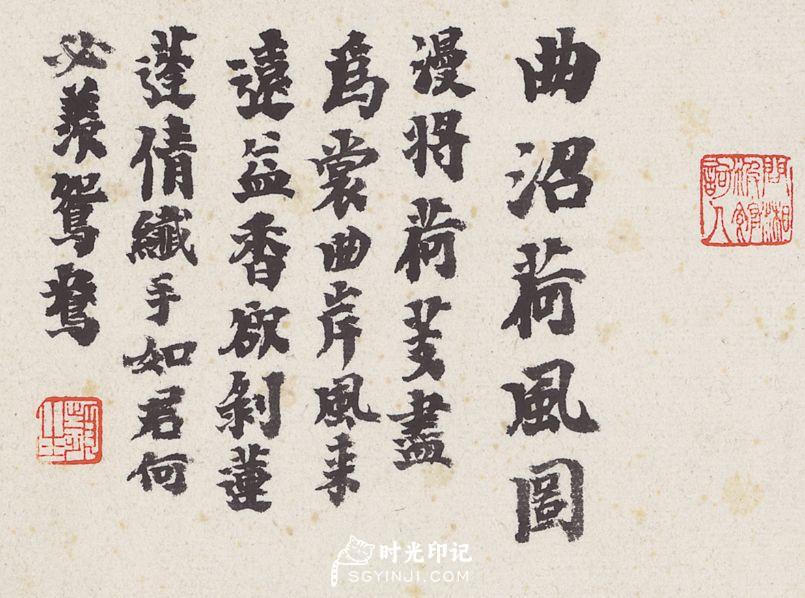 曲沼荷風圖
漫將荷芰盡
爲裳曲岸風来
遠益香欲剝蓮
蓬倩纖手如君何
必羨鴛鴦
时光印记
SGYINJI.COM